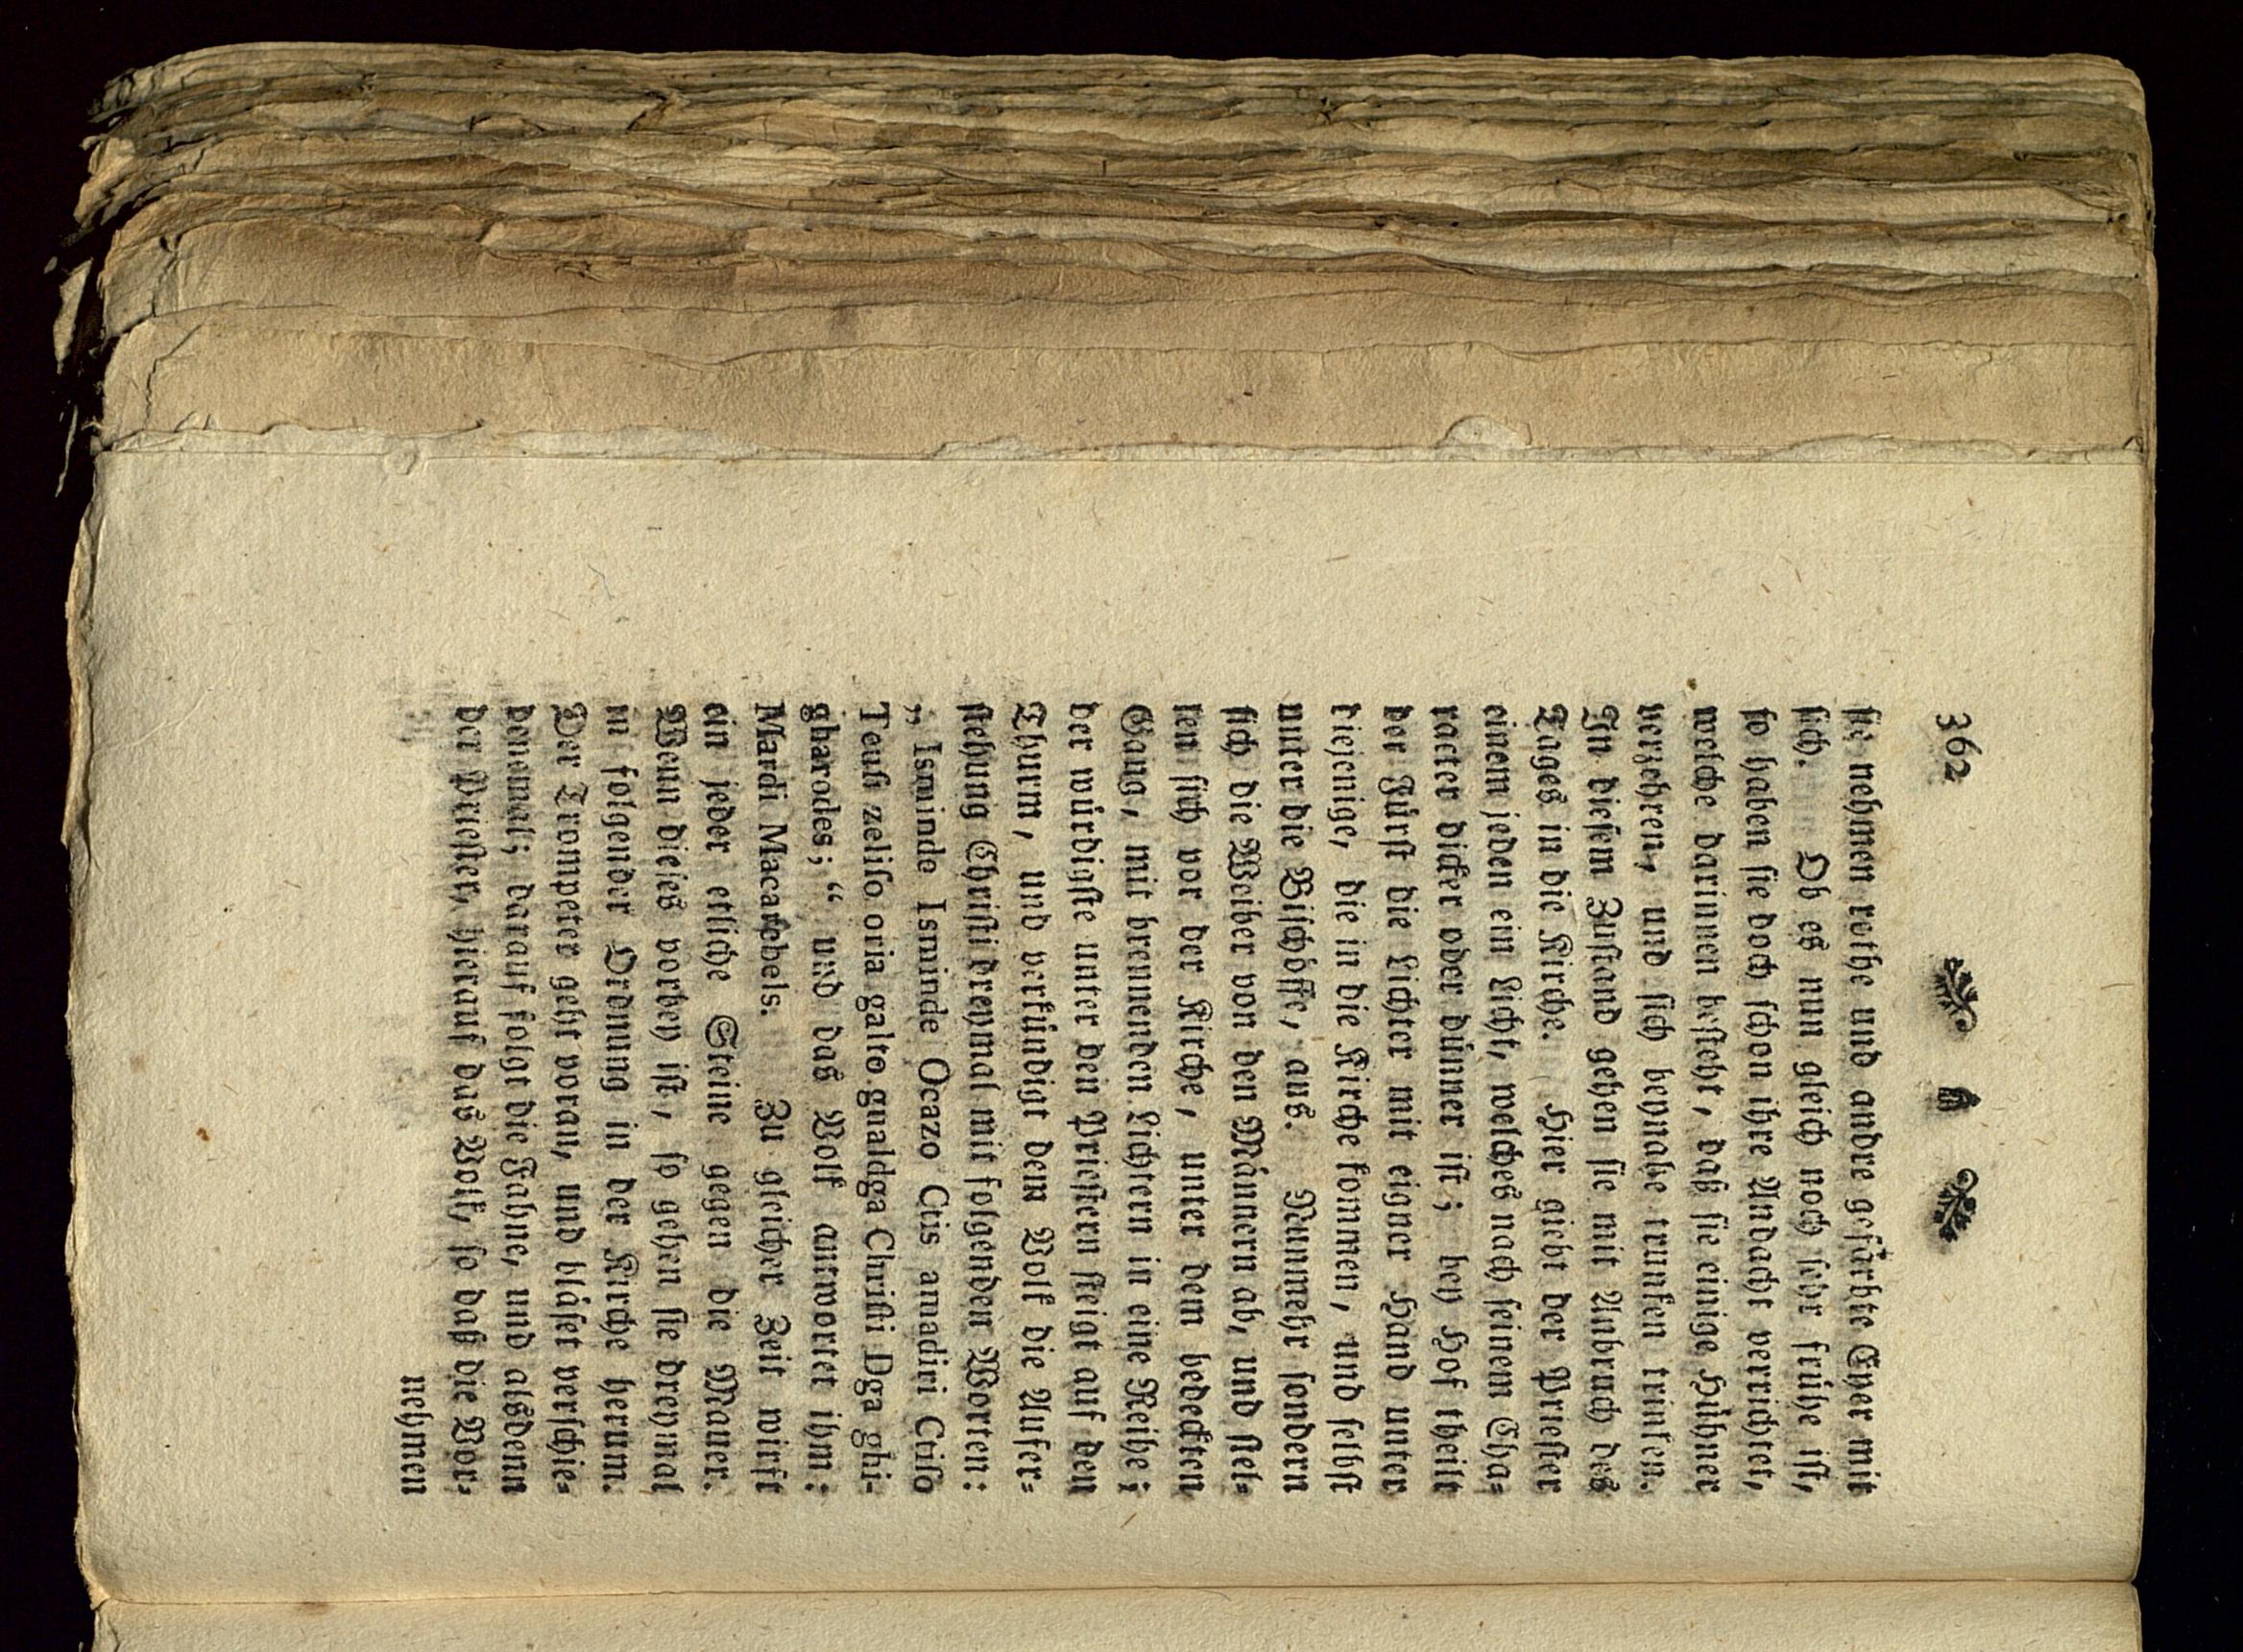 362
sie nehmen rothe und andre gefärbte Eyer mit
sich. Ob es nun gleich noch sehr frühe ist,
so haben sie doch schon ihre Andacht verrichtet,
welche darinnen besteht, daß sie einige Hühner
verzehren, und sich beynahe trunken trinken.
In diesem Zustand gehen sie mit Anbruch des
Tages in die Kirche. Hier giebt der Priester
einem jeden ein Licht, welches nach seinem Cha-
racter dicker oder dünner ist; bey Hof theilt
der Fürst die Lichter mit eigner Hand unter
diejenige, die in die Kirche kommen, und selbst
unter die Bischöffe, aus. Nunmehr sondern
sich die Weiber von den Männern ab, und stel-
len sich vor der Kirche, unter dem bedeckten
Gang, mit brennenden Lichtern in eine Reihe;
der würdigste unter den Priestern steigt auf den
Thurm, und verkündigt dem Volk die Aufer-
stehung Christi dreymal mit folgenden Worten:
„ Isminde Isminde Ocazo Ctis amadiri Ctiſo
Teuſi zeliſo oria galto gnaldga Chriſti Dga ghi-
gharodes; “ und das Volk antwortet ihm:
Mardi Macaſebels. Zu gleicher Zeit wirft
ein jeder etliche Steine gegen die Mauer.
Wenn dieses vorbey ist, so gehen sie dreymal
in folgender Ordnung in der Kirche herum.
Der Trompeter geht voran, und bläset verschie-
denemal; darauf folgt die Fahne, und alsdenn
der Priester, hierauf das Volk, so daß die Vor-
nehmen